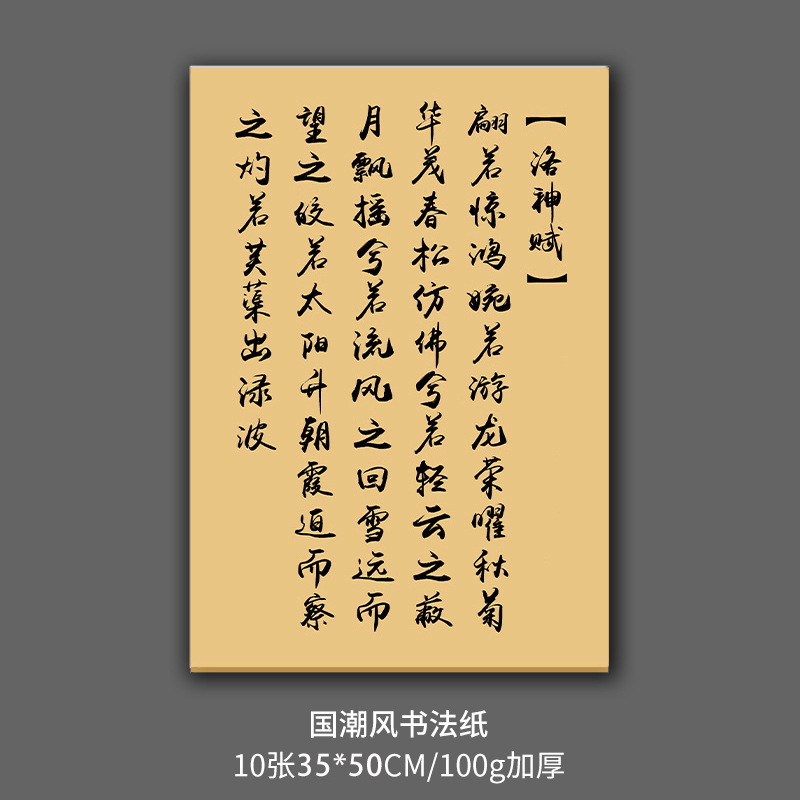 【洛神赋】
翩若惊鸿婉若游龙荣曜秋菊
华茂春松仿佛兮若轻云之蔽
月飘摇兮若流风之回雪远而
望之皎若太阳升朝霞迫而察
之灼若芙蕖出渌波
国潮风书法纸
10张35*50CM/100g加厚